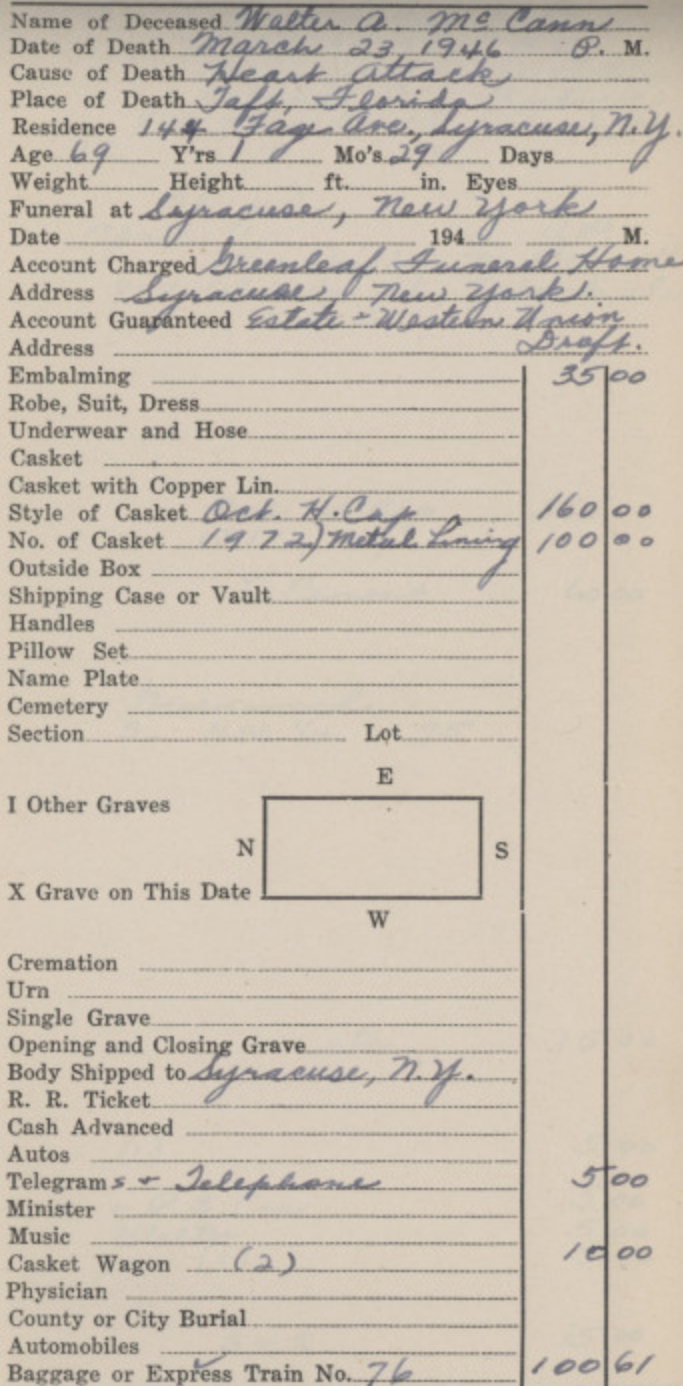 Name of Deceased Walter A. McCann
Date of Death March 23, 1946 P. M.
Cause of Death Heart Attack
Place of Death Taft, Florida
Residence 144 Fage Ave., Syracuse, N.Y.
Age 69 Y'rs 1 Mo's 29 Days
Weight Height ft. in. Eyes
Funeral at Syracuse, New York
Date 194 M.
Account Charged Greenleaf Funeral Home
Address Syracuse, New York.
Account Guaranteed Estate - Western Union
Address Draft.
Embalming 35 00
Robe, Suit, Dress
Underwear and Hose
Casket
Casket with Copper Lin.
Style of Casket Oct. H. Cap 160 00
No. of Casket 1972) Metal Lining 100 00
Outside Box
Shipping Case or Vault
Handles
Pillow Set
Name Plate
Cemetery
Section Lot
E
I Other Graves
N S
X Grave on This Date
W
Cremation
Urn
Single Grave
Opening and Closing Grave
Body Shipped to Syracuse, N.Y.
R. R. Ticket
Cash Advanced
Autos
Telegrams + Telephone 5 00
Minister
Music
Casket Wagon (2) 10 00
Physician
County or City Burial
Automobiles
Baggage or Express Train No. 76 100 61